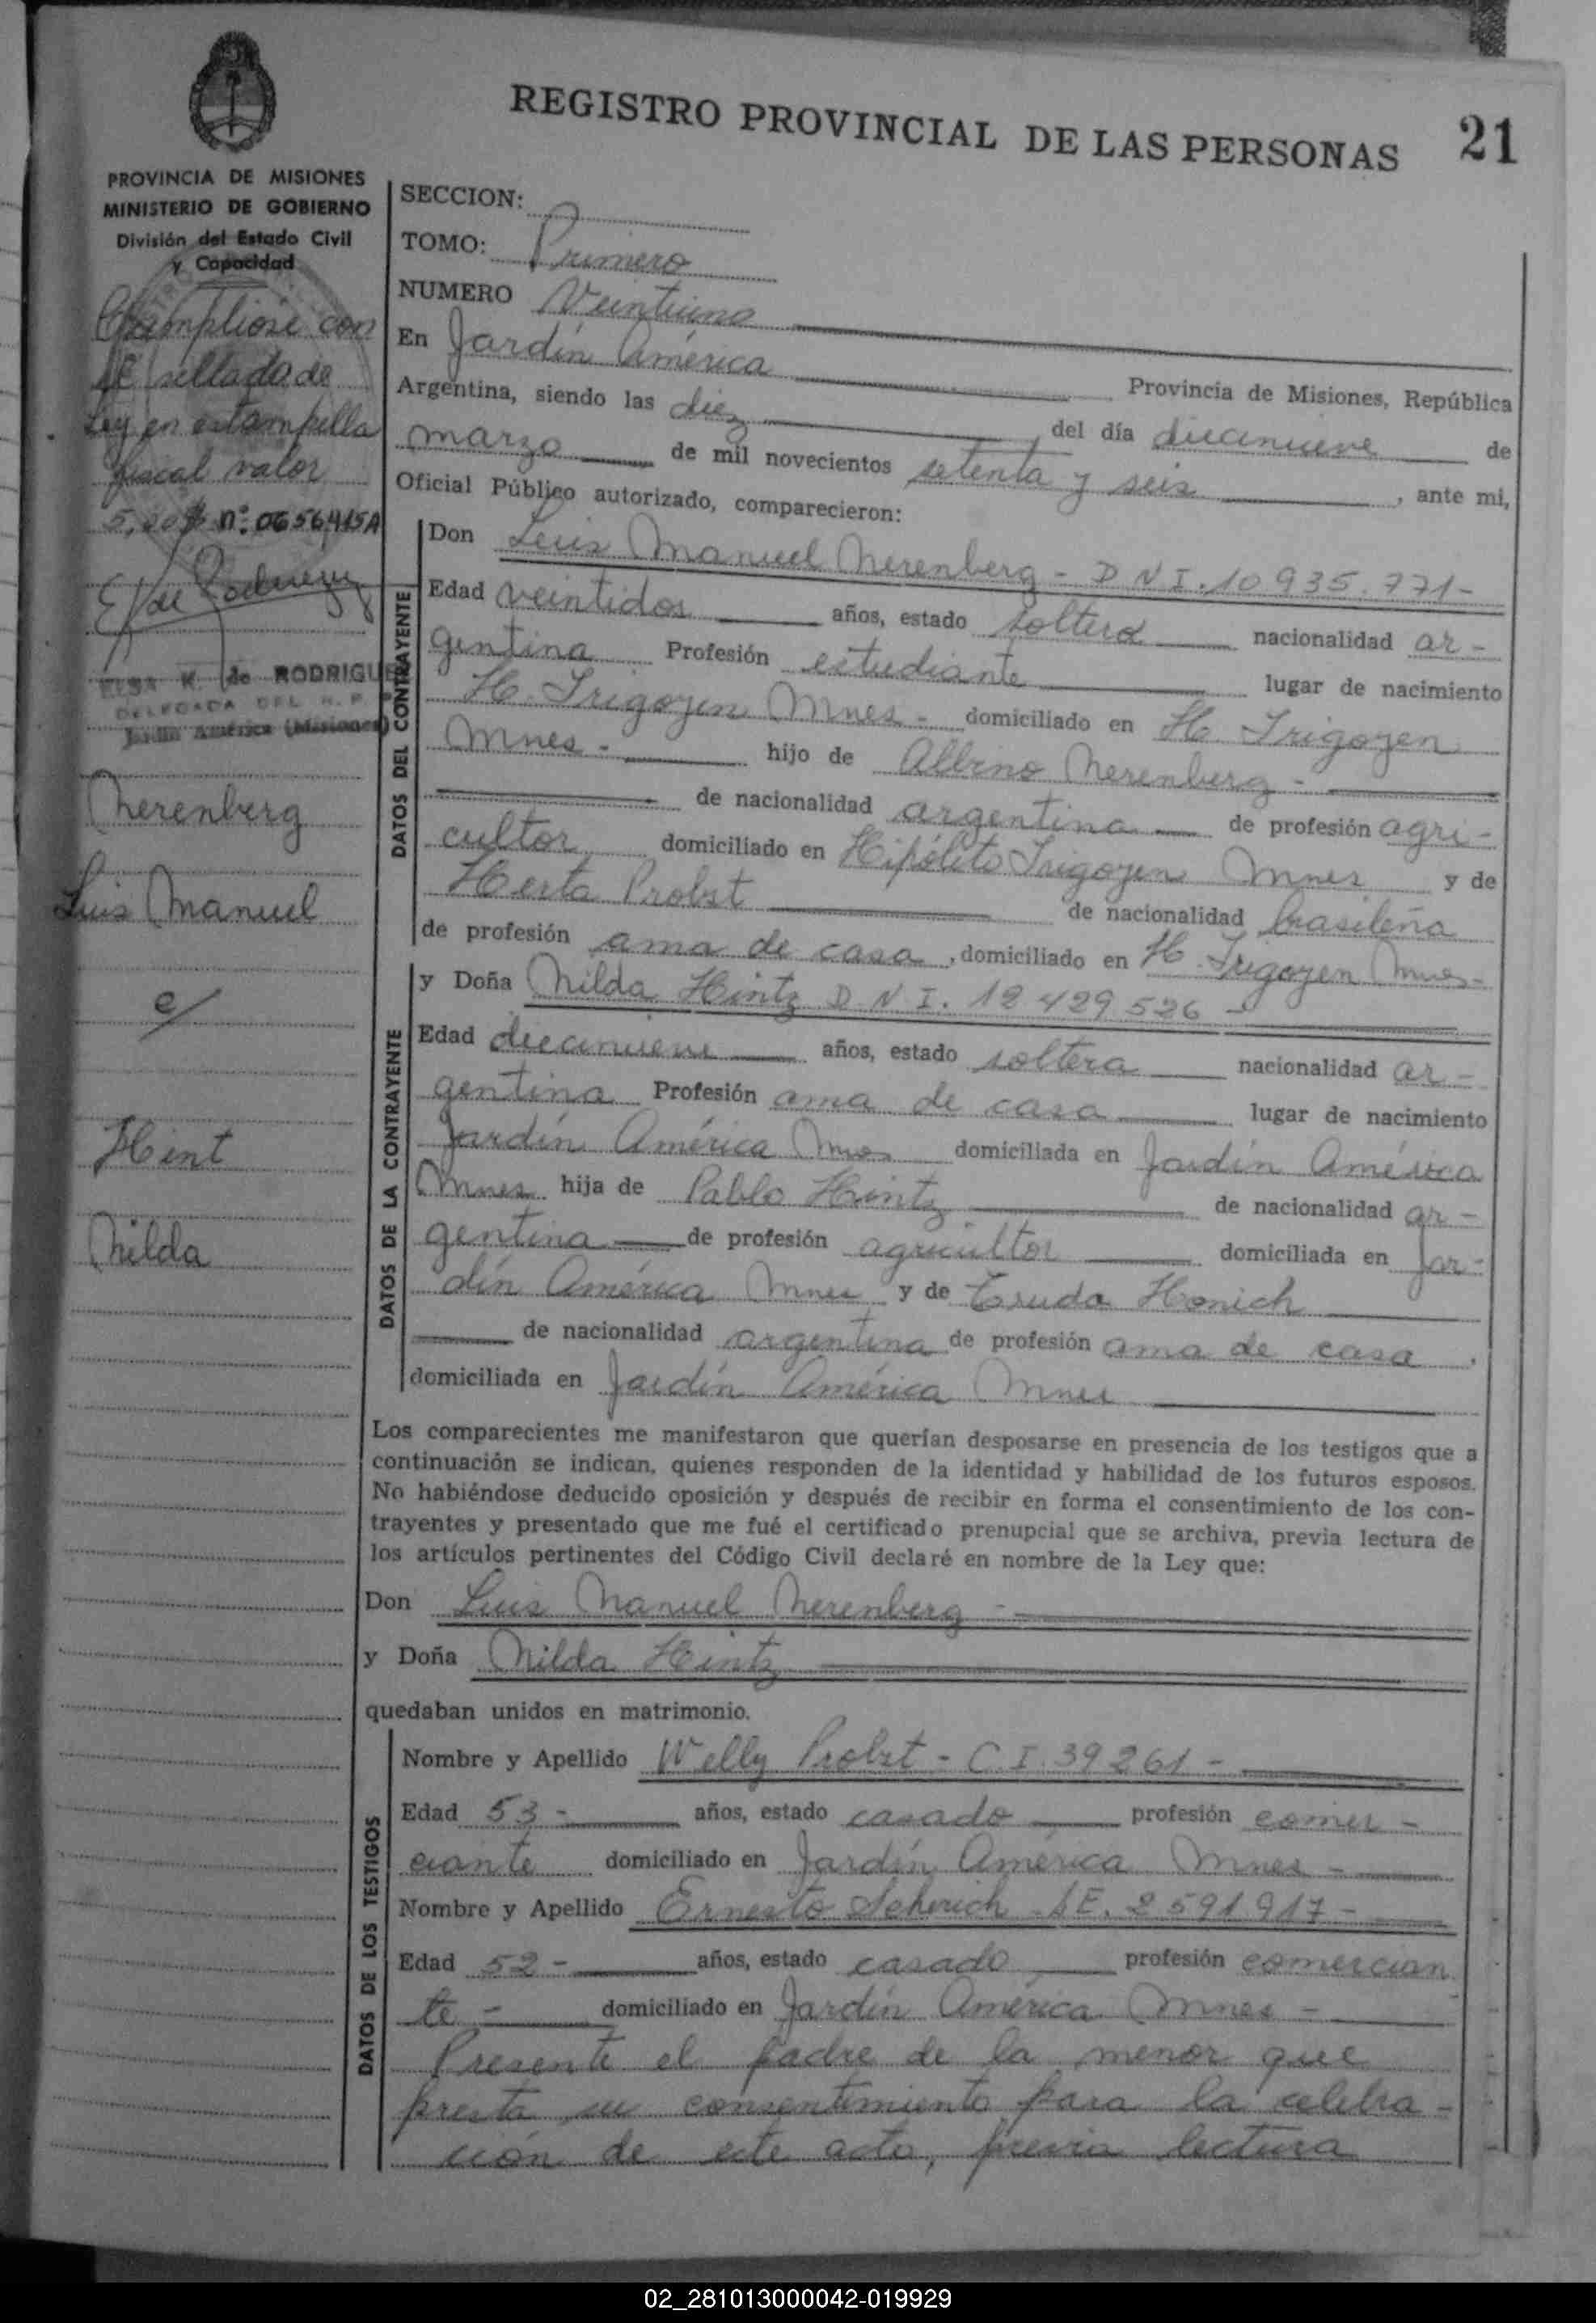 REGISTRO PROVINCIAL DE LAS PERSONAS 21
PROVINCIA DE MISIONES
MINISTERIO DE GOBIERNO
División del Estado Civil
y Capacidad
Cúmpliose con
el sellado de
Ley en estampilla
fiscal valor
5,00 $ nº 0656415A
ELSA K. de RODRIGUEZ
DELEGADA DEL R. P.
Jardín América (Misiones)
Nerenberg
Luis Manuel
c/
Hint
Nilda
SECCION:
TOMO: Primero
NUMERO Veintiuno
En Jardín América Provincia de Misiones, República
Argentina, siendo las diez del día diecinueve de
marzo de mil novecientos setenta y seis, ante mi,
Oficial Público autorizado, comparecieron:
DATOS DEL CONTRAYENTE
Don Luis Manuel Nerenberg - DNI. 10 935.771 -
Edad veintidos años, estado soltero nacionalidad ar-
gentina Profesión estudiante lugar de nacimiento
H. Irigoyen Mnes - domiciliado en H. Irigoyen
Mnes - hijo de Albino Nerenberg -
de nacionalidad argentina de profesión agri-
cultor domiciliado en Hipólito Irigoyen Mnes y de
Herta Probst de nacionalidad brasileña
de profesión ama de casa, domiciliado en H. Irigoyen Mnes -
DATOS DE LA CONTRAYENTE
y Doña Nilda Hintz D N I. 12 429 526 -
Edad diecinueve años, estado soltera nacionalidad ar-
gentina Profesión ama de casa lugar de nacimiento
Jardín América Mnes domiciliada en Jardín América
Mnes hija de Pablo Hintz de nacionalidad ar-
gentina de profesión agricultor domiciliada en Jar-
dín América Mnes y de Truda Honich
de nacionalidad argentina de profesión ama de casa,
domiciliada en Jardín América Mnes
Los comparecientes me manifestaron que querían desposarse en presencia de los testigos que a
continuación se indican, quienes responden de la identidad y habilidad de los futuros esposos.
No habiéndose deducido oposición y después de recibir en forma el consentimiento de los con-
trayentes y presentado que me fué el certificado prenupcial que se archiva, previa lectura de
los artículos pertinentes del Código Civil declaré en nombre de la Ley que:
Don Luis Manuel Nerenberg -
y Doña Nilda Hintz
quedaban unidos en matrimonio.
DATOS DE LOS TESTIGOS
Nombre y Apellido Welly Probst - C.I. 39261 -
Edad 53 - años, estado casado profesión comer-
ciante domiciliado en Jardín América Mnes -
Nombre y Apellido Ernesto Scherich - LE. 2 591 917 -
Edad 52 - años, estado casado profesión comercian
te - domiciliado en Jardín América Mnes -
Presente el padre de la menor que
presta su consentimiento para la celebra-
ción de este acto, previa lectura
02_281013000042-019929